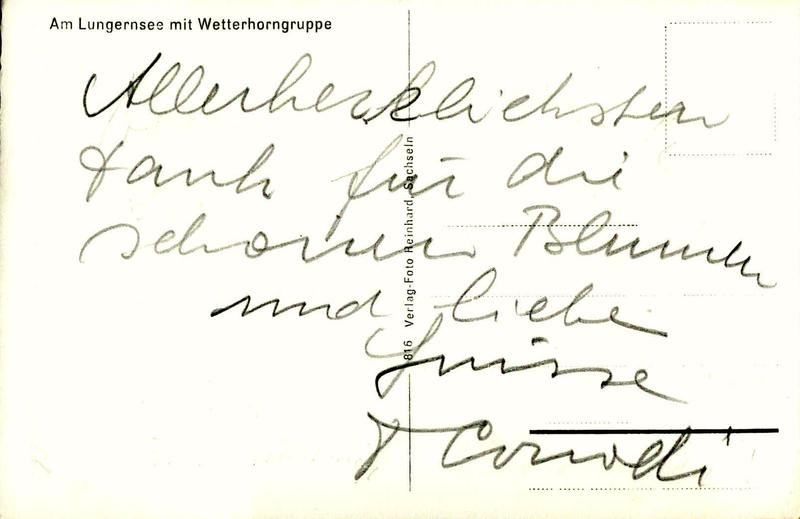 Am Lungernsee mit Wetterhorngruppe
Allerherzlichsten
Dank für die
schönen Blumen
und liebe
Grüsse
816 Verlag-Foto Reinhard, Sachseln